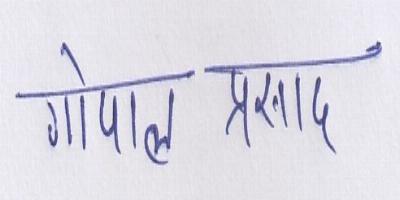 गोपाल प्रसाद